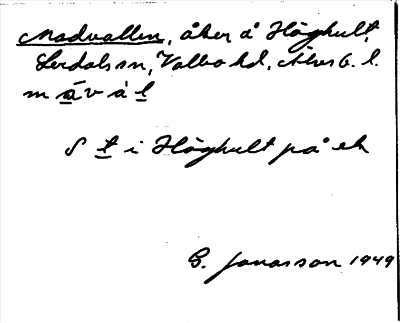 Madvallen, åker å Höghult,
Lerdals sn, Valbo hd, Älvsb. l.
m a̱ v à ḻ
S ṯ i Höghult på ek
G. Jonasson 1949